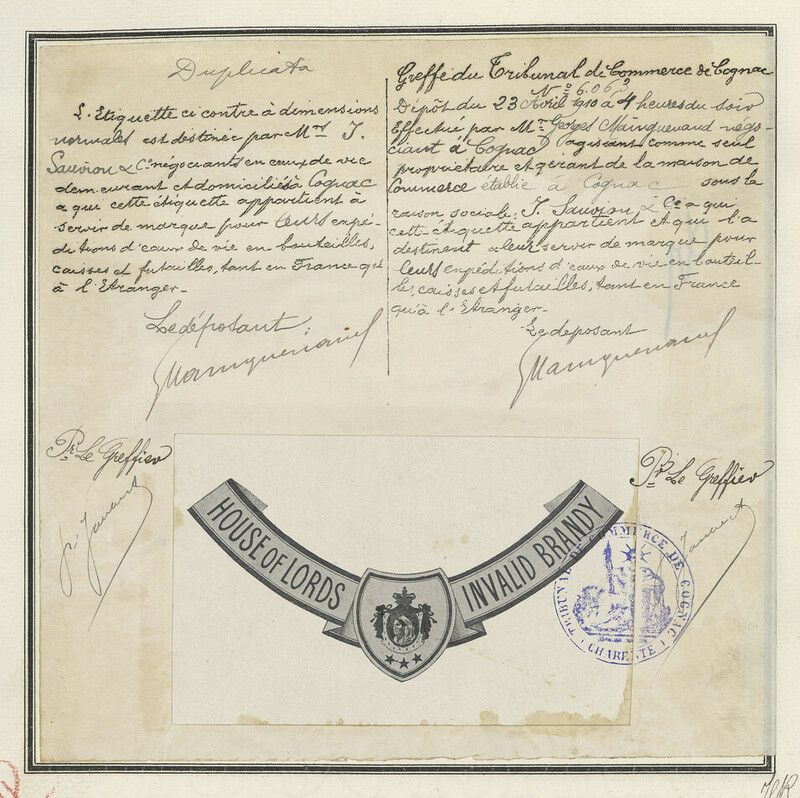 Duplicata
L'Etiquette ci contre à dimensions
normales est destinée par Mrs J.
Sauvion & Cie négociants en eaux de vie
demeurant et domiciliés à Cognac
a qui cette étiquette appartient à
servir de marque pour leurs expé-
ditions d'eaux de vie en bouteilles,
caisses et futailles, tant en France qu'
à l'Etranger.-
Le déposant:
Greffe du Tribunal de Commerce de Cognac
No 6.063
Dépôt du 23 Avril 1910 à 4 heures du soir
Effectué par Mr Georges Mainguenaud négo-
ciant à Cognac agissant comme seul
propriétaire et gérant de la maison de
Commerce établie à Cognac sous la
raison sociale: J. Sauvion & Cie a qui
cette étiquette appartient et qui l'a
destinent a leur servir de marque pour
leurs expéditions d'eaux de vie en bouteil-
les, caisses et futailles, tant en France
qu'à l'Etranger.-
Le deposant
Mainguenaud
Mainguenaud
Pr Le Greffier
Pr Le Greffier
HOUSE OF LORDS INVALID BRANDY
TRIBUNAL DE COMMERCE DE COGNAC
CHARENTE